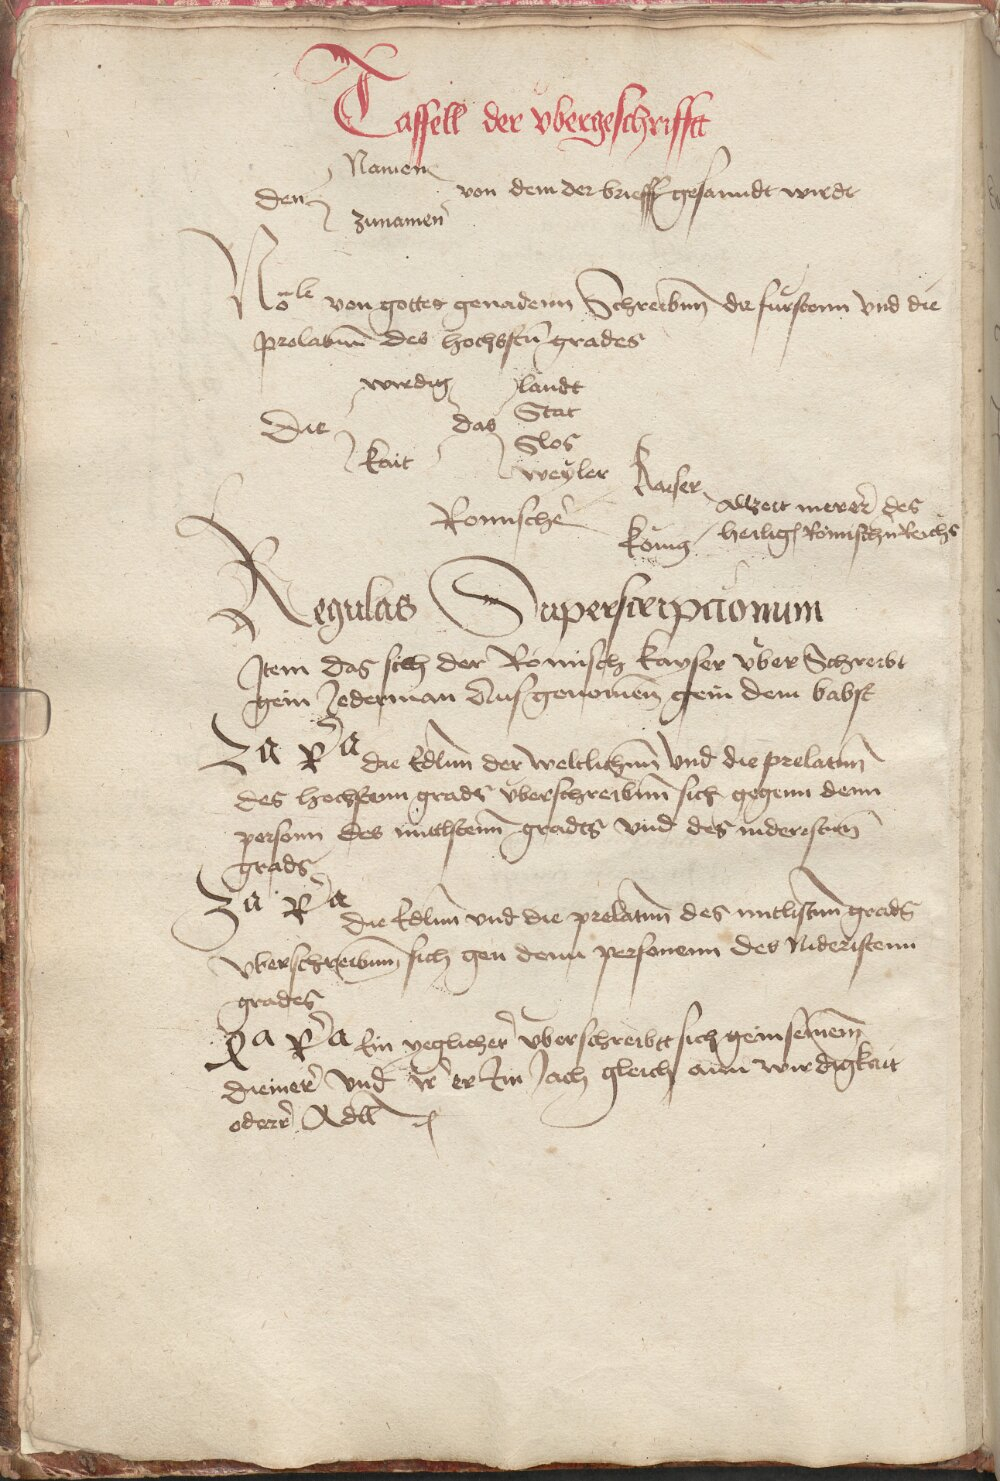 Taffell der vbergeschrifftt
Namen
den von dem der brieff gesanndt wirdt
zunamen
von gottes genadenn Schreibnn die furstenn vnd die
prelatnn des hochstn grades
wirdig landt
Stat
Die das
Slos
kait weyler
Kaeser
Allzeit merer des
Romischer
heilig Romischn Reichs
Konig
Regulas Superscripcionum
Item das sich der Romisch kayser vber Schreibt
gein Jederman Ausgenomen gein dem babst
2a Ra die Edlnn der weltlichnn vnd die prelatnn
des hochstenn grads vberschreibnn sich gegenn denn
personn des mittlstenn gradts vnd des nideristen
grads
3a Ra die Edlnn vnd die prelatnn des mitlistnn grads
vberschreibnn sich gen denn personenn des Nideristenn
grades
4a Ra Ein yeglicher vberschreibtt sich gein seinem
diener vnd er Im Jach gleich ann wirdigkait
oderr Adll